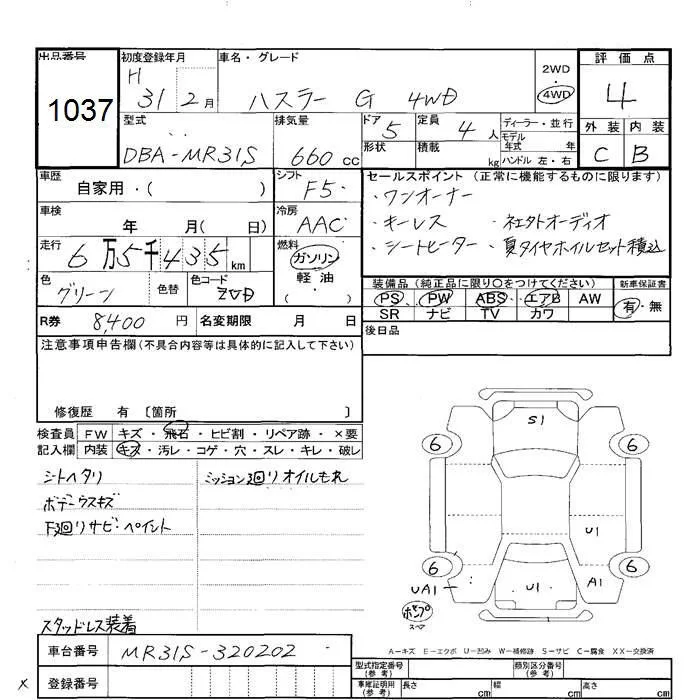 出品番号 初度登録年月 車名・グレード 2WD 4WD 評価点
1037 H 31 2月 ハスラー G 4WD 4
型式 排気量 ドア 5 定員 4人 ディーラー・並行 外装 内装
DBA-MR31S 660cc 形状 積載 kg モデル年式 年 ハンドル 左・右 C B
車歴 自家用・( ) シフト F5 セールスポイント (正常に機能するものに限ります)
・ワンオーナー
車検 年 月( 日) 冷房 AAC ・キーレス ・社外オーディオ
走行 6万5千435km 燃料 ガソリン 軽油 ・( ) ・シートヒーター ・夏タイヤホイルセット積込
色 グリーン 色替 色コード ZVD 装備品 (純正品に限り○をつけてください) 新車保証書
PS PW ABS エアB AW 有・無
SR ナビ TV カワ
R券 8,400円 名変期限 月 日 後日品
注意事項申告欄(不具合内容等は具体的に記入して下さい)
修復歴 有 〔箇所 〕
検査員 FW キズ・飛石・ヒビ割・リペア跡・×要
記入欄 内装 キズ・汚レ・コゲ・穴・スレ・キレ・破レ
シートヘタリ ミッション廻リオイルもれ
ボデーウスキズ
下廻リサビ・ペイント
スタッドレス装着
S1
6 6
U1
6 6
UA1 U1 A1
ポンプ
スペア
A-キズ E-エクボ U-凹み W-補修跡 S-サビ C-腐食 XX-交換済
車台番号 MR31S-320202 型式指定番号(参考) 類別区分番号(参考)
× 登録番号 車庫証明用(参考) 長さ cm 幅 cm 高さ cm